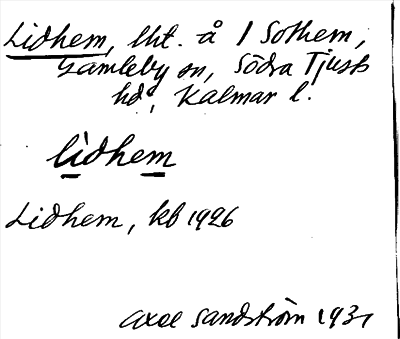 Lidhem, lht. å 1 Solhem,
Gamleby sn, Södra Tjusts
hd, Kalmar l.
lìdhem
Lidhem, kb 1926
Axel Sandström 1931